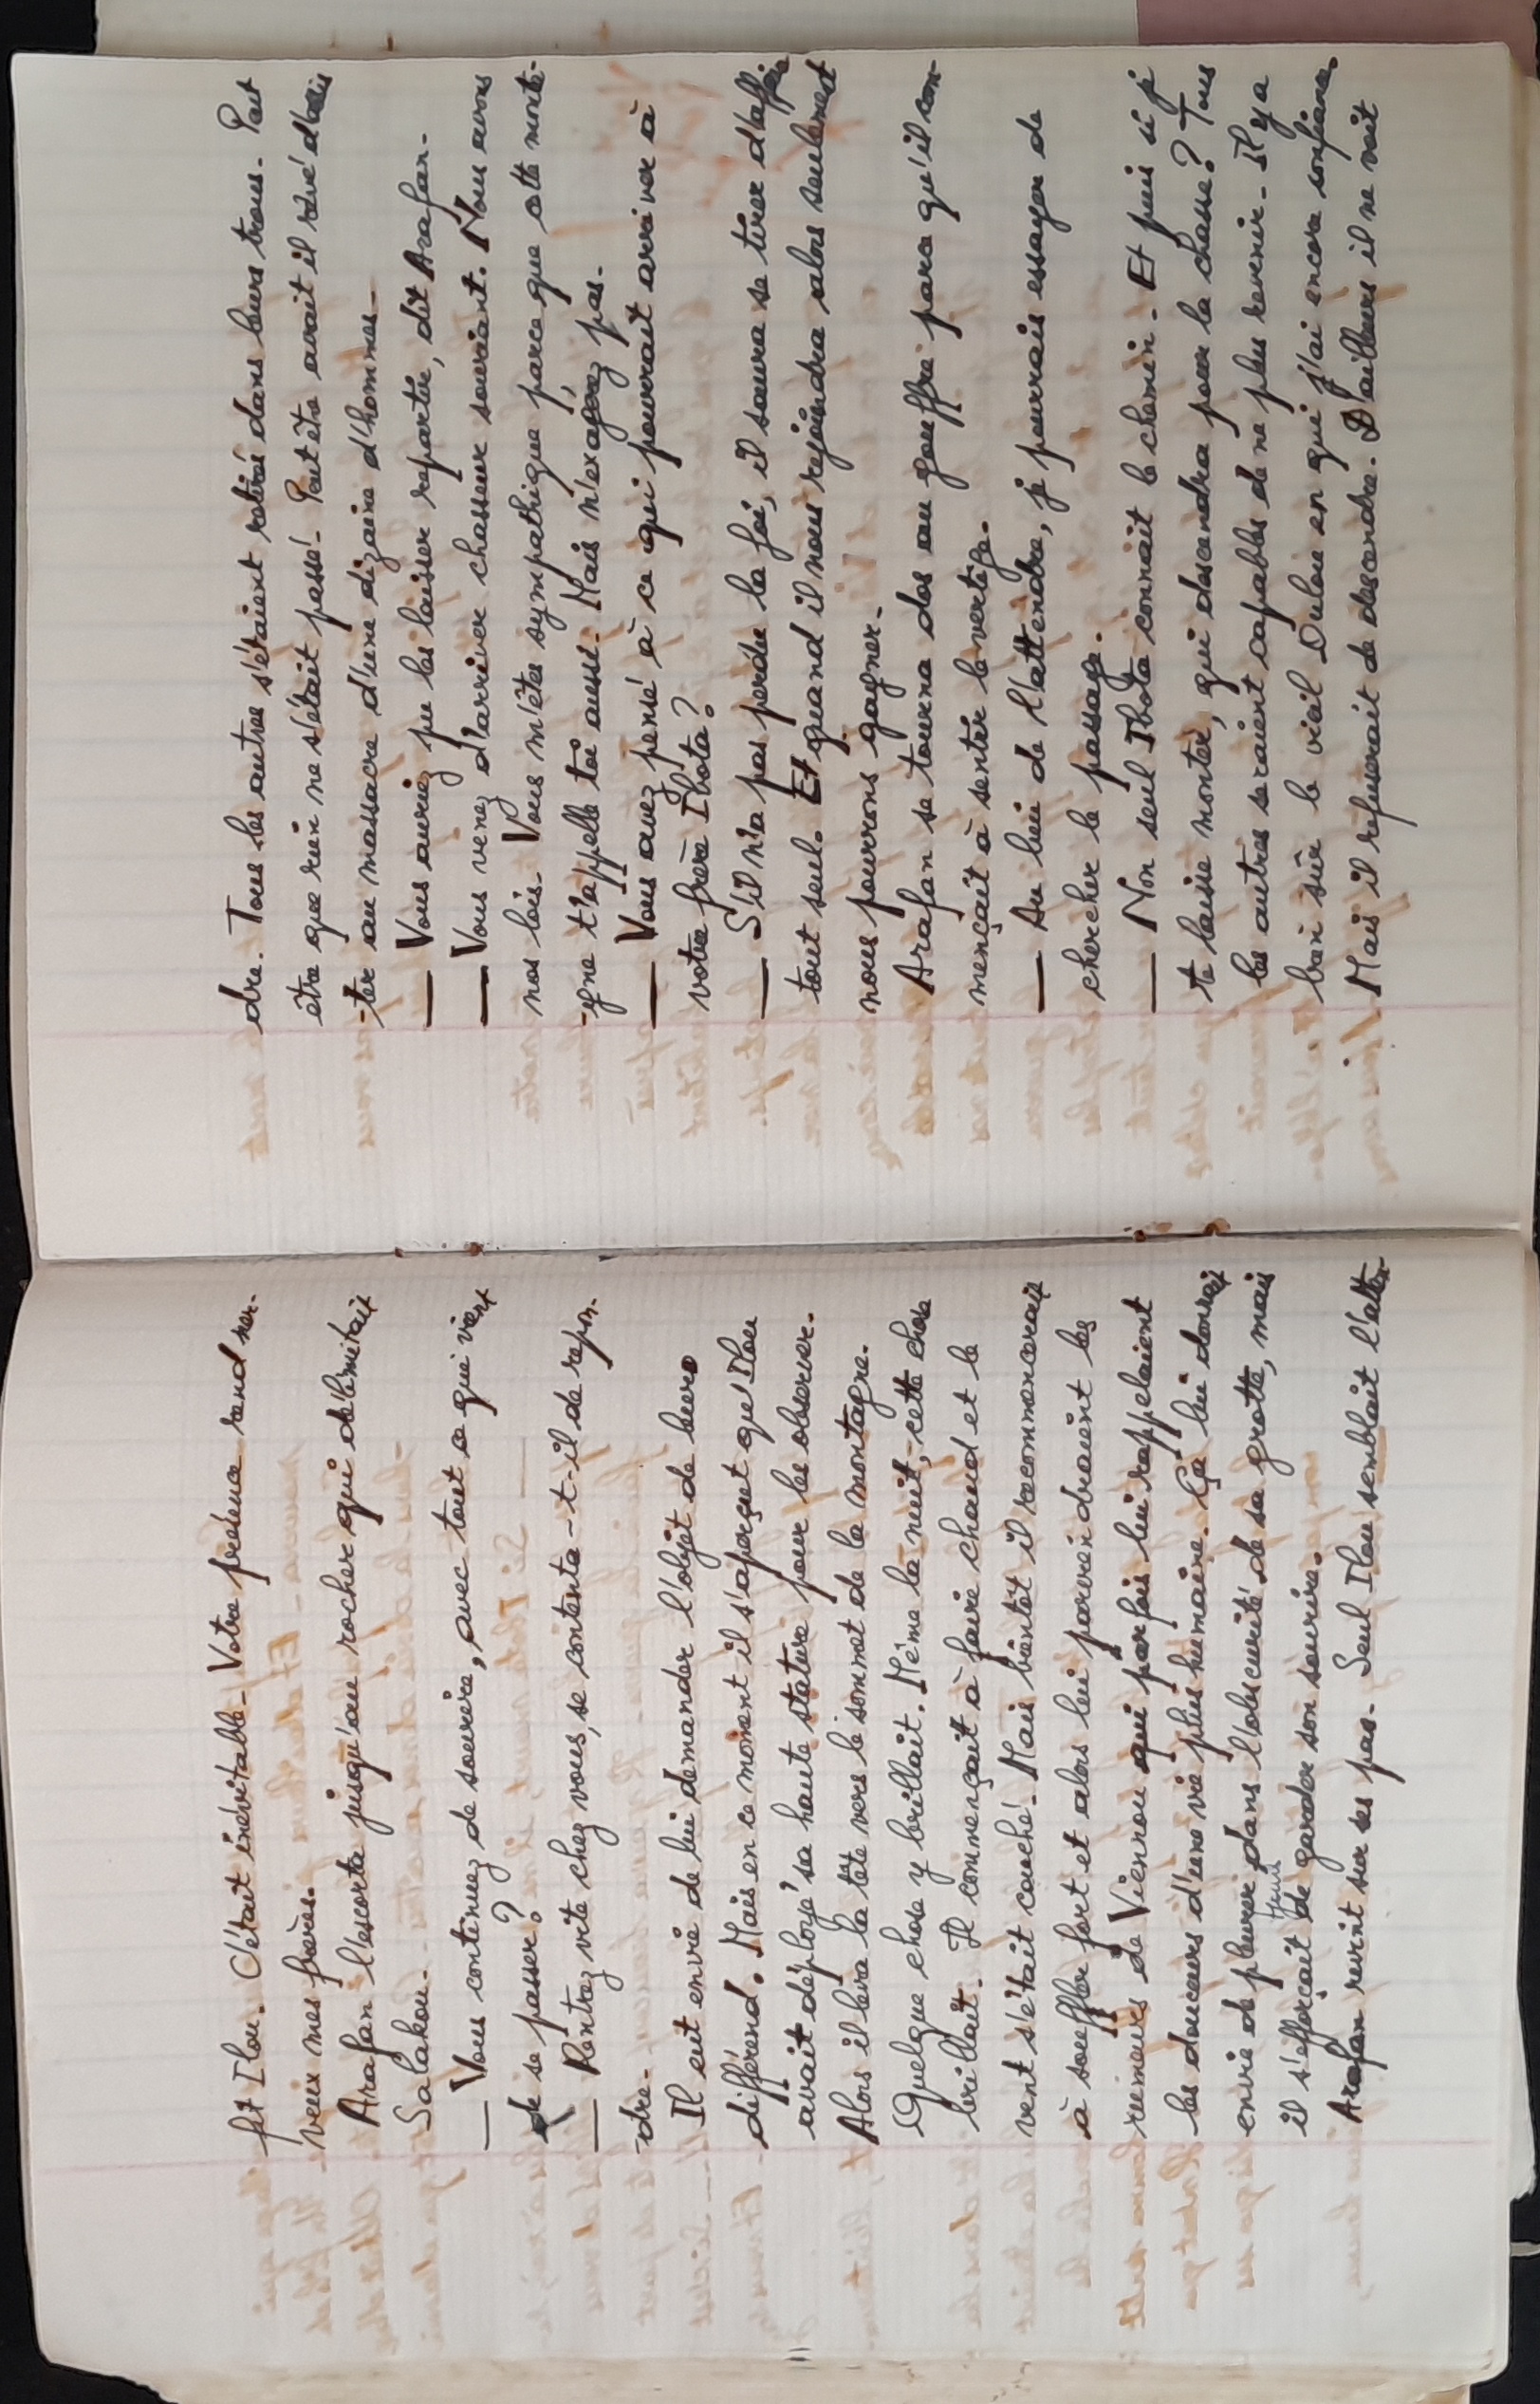 fit Ilou. C'était inévitable. Votre présence rend ner-
veux mes frères.
Arafan l'escorta jusqu'au rocher qui délimitait
Salakou.
— Vous continuez de sourire, avec tout ce qui vient
de se passer?
— Rentrez vite chez vous, se contenta-t-il de repon-
-dre.
Il eut envie de lui demander l'objet de leurs
différend. Mais en ce moment il s'aperçut qu'Ilou
avait déployé sa haute stature pour les observer.
Alors il leva la tête vers le sommet de la montagne.
Quelque chose y brillait. Même la nuit, cette chose
brillait. Il commençait à faire chaud et le
vent s'était couché. Mais bientôt il recommencerait
à souffler fort et alors lui parviendraient les
rumeurs de Vienrou qui parfois lui rappelaient
les douceurs d'une vie plus humaine. Ça lui donnait
envie de pleurer dans l'obscurité de sa grotte, mais
il s'efforçait de garder son sourire.
Arafan revint sur ses pas. Seul Ilou semblait l'atten-
dre. Tous les autres s'étaient retirés dans leurs trous. Peut
être que rien ne s'était passé. Peut être avait il rêvé d'assis
-ter au massacre d'une dizaine d'hommes.
— Vous auriez pu les laisser repartir, dit Arafan.
— Vous venez d'arriver chasseur souriant. Nous avons
nos lois. Vous m'êtes sympathique parce que cette monta-
-gne t'appelle toi aussi. Mais n'exagérez pas.
— Vous avez pensé à ce qui pourrait arriver à
votre frère Ibota?
— S'il n'a pas perdu la foi, il saura se tirer d'affaire
tout seul. Et quand il nous rejoindra alors seulement
nous pourrons gagner.
Arafan se tourna dos au gouffre parce qu'il com-
mençait à sentir le vertige.
— Au lieu de l'attendre, je pourrais essayer de
chercher le passage.
— Non seul Ibota connait le chemin. Et puis si je
te laisse monter, qui descendra pour la chasse? Tous
les autres seraient capables de ne plus revenir. Il y a
bien sûr le vieil Oulou en qui j'ai encore confiance.
Mais il refuserait de descendre. D'ailleurs il ne voit